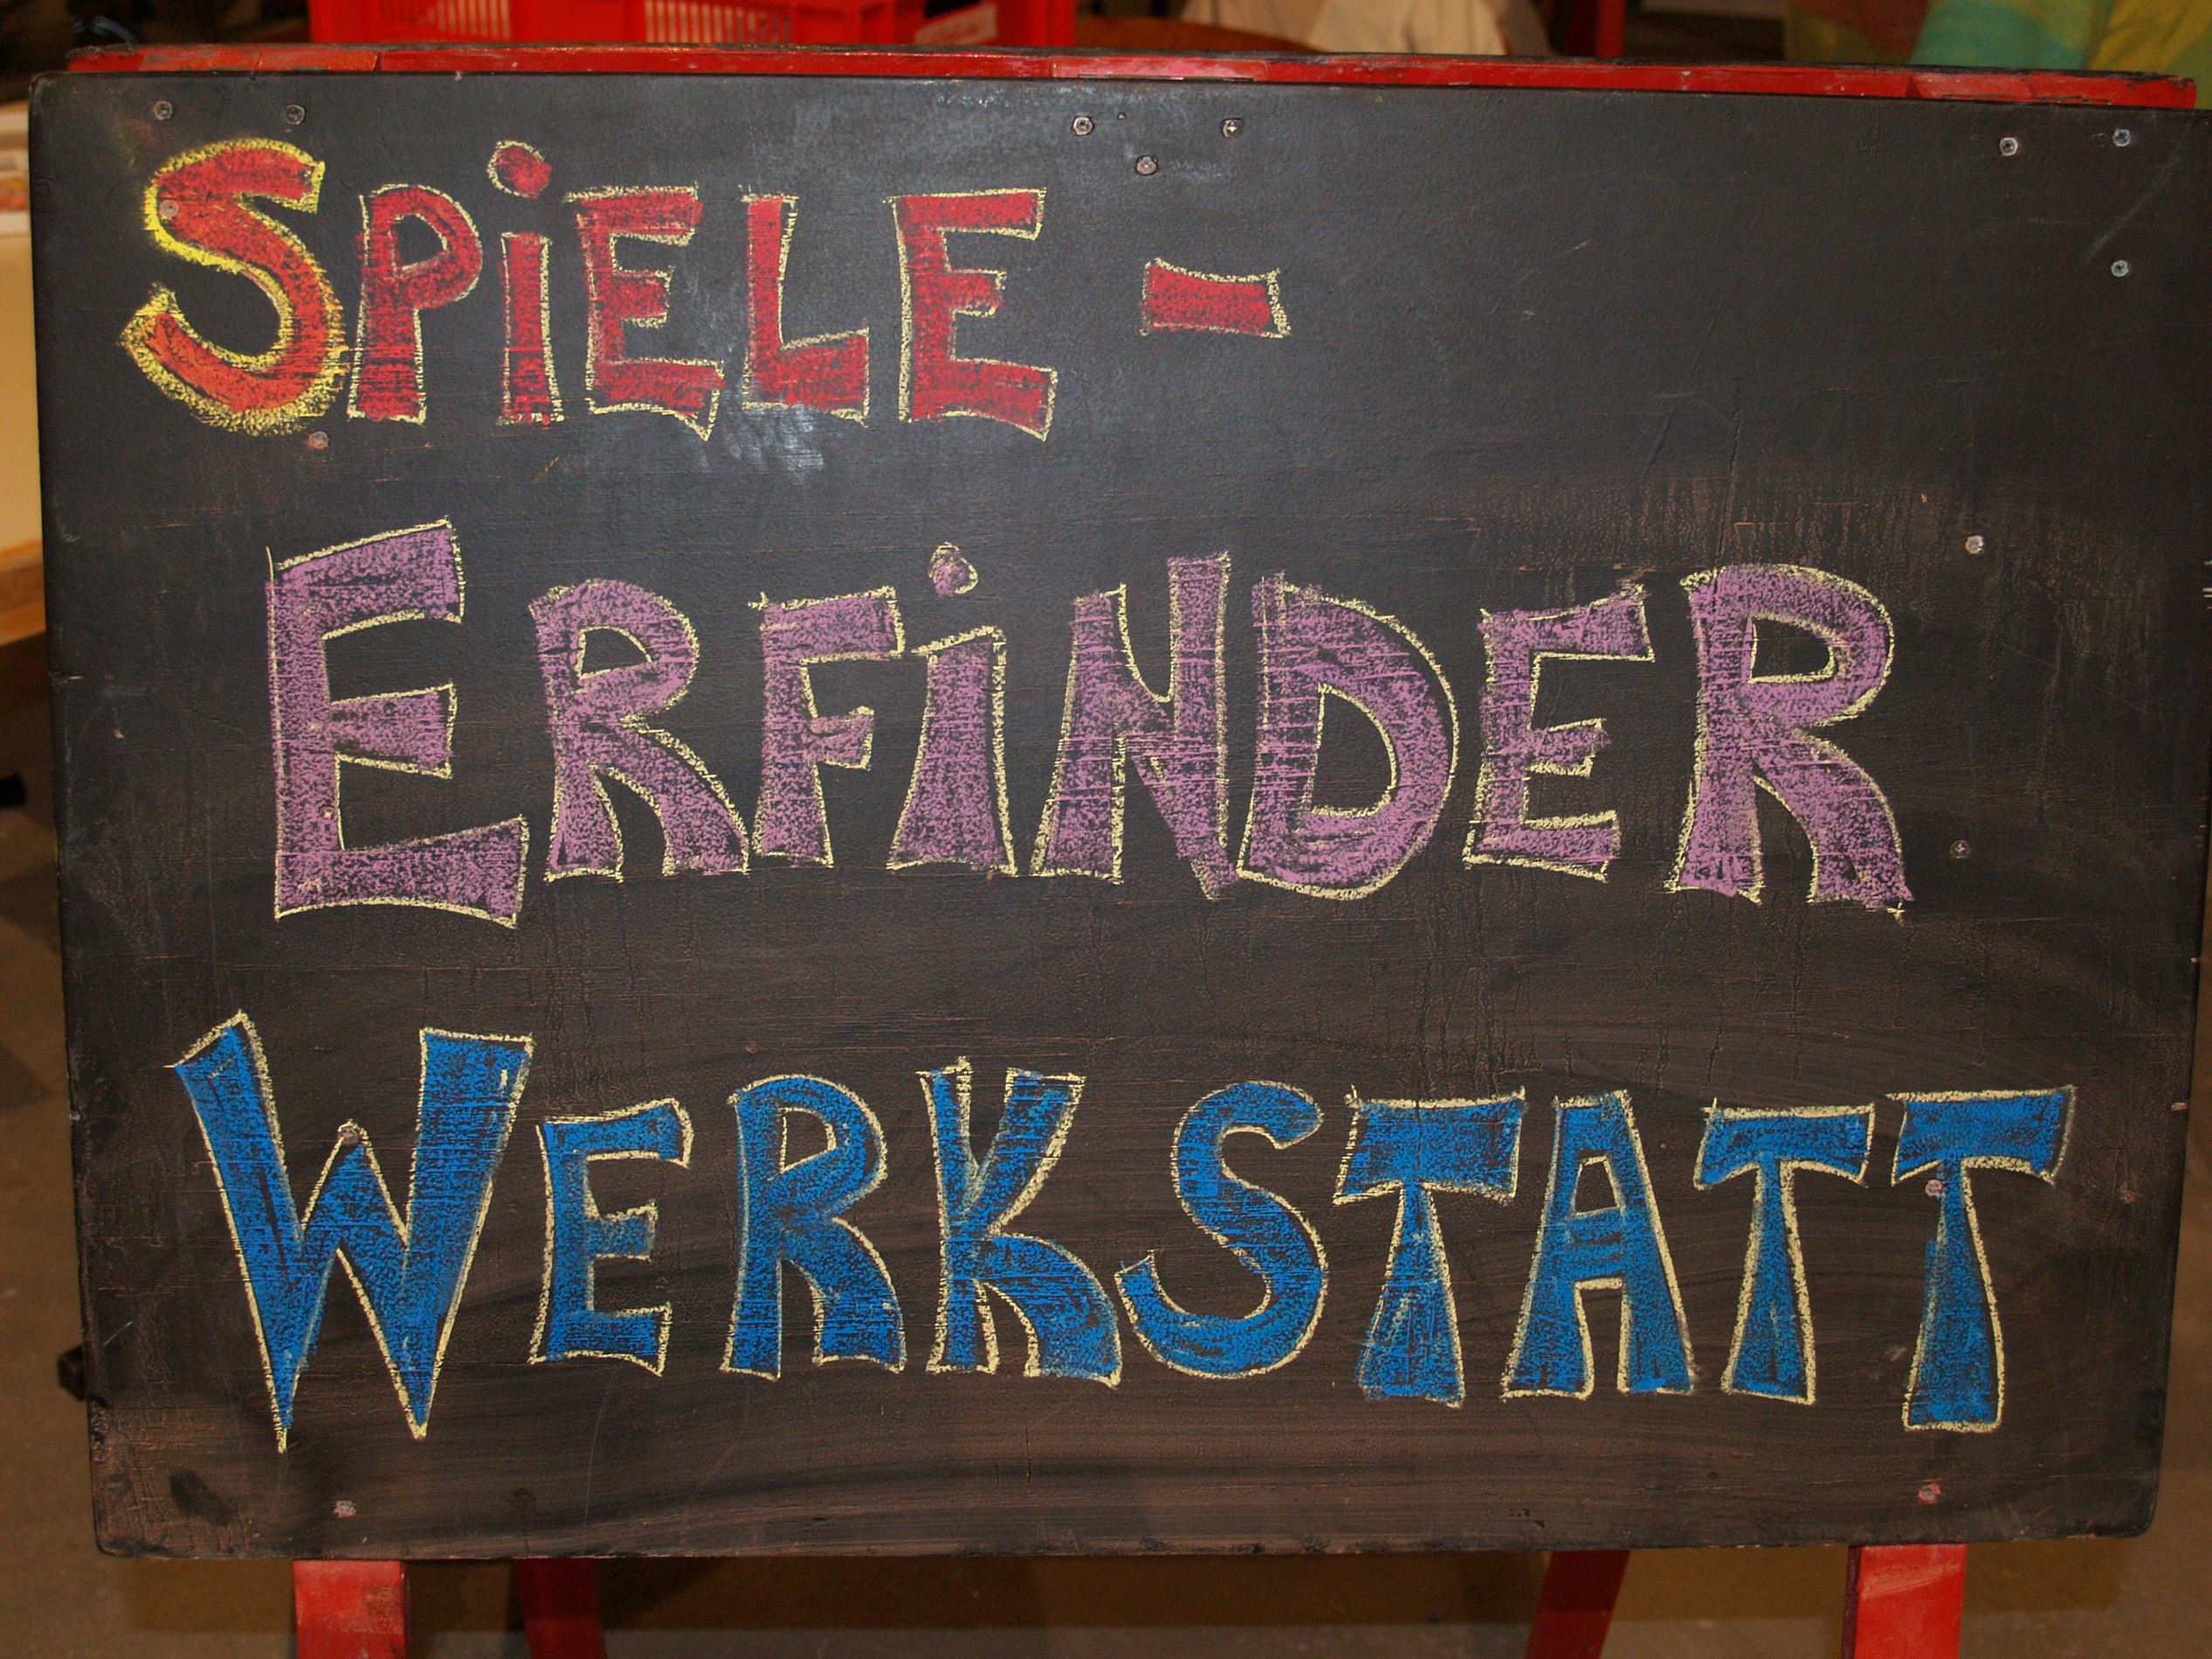 SPiELE -
ERFiNDER
WERKSTATT